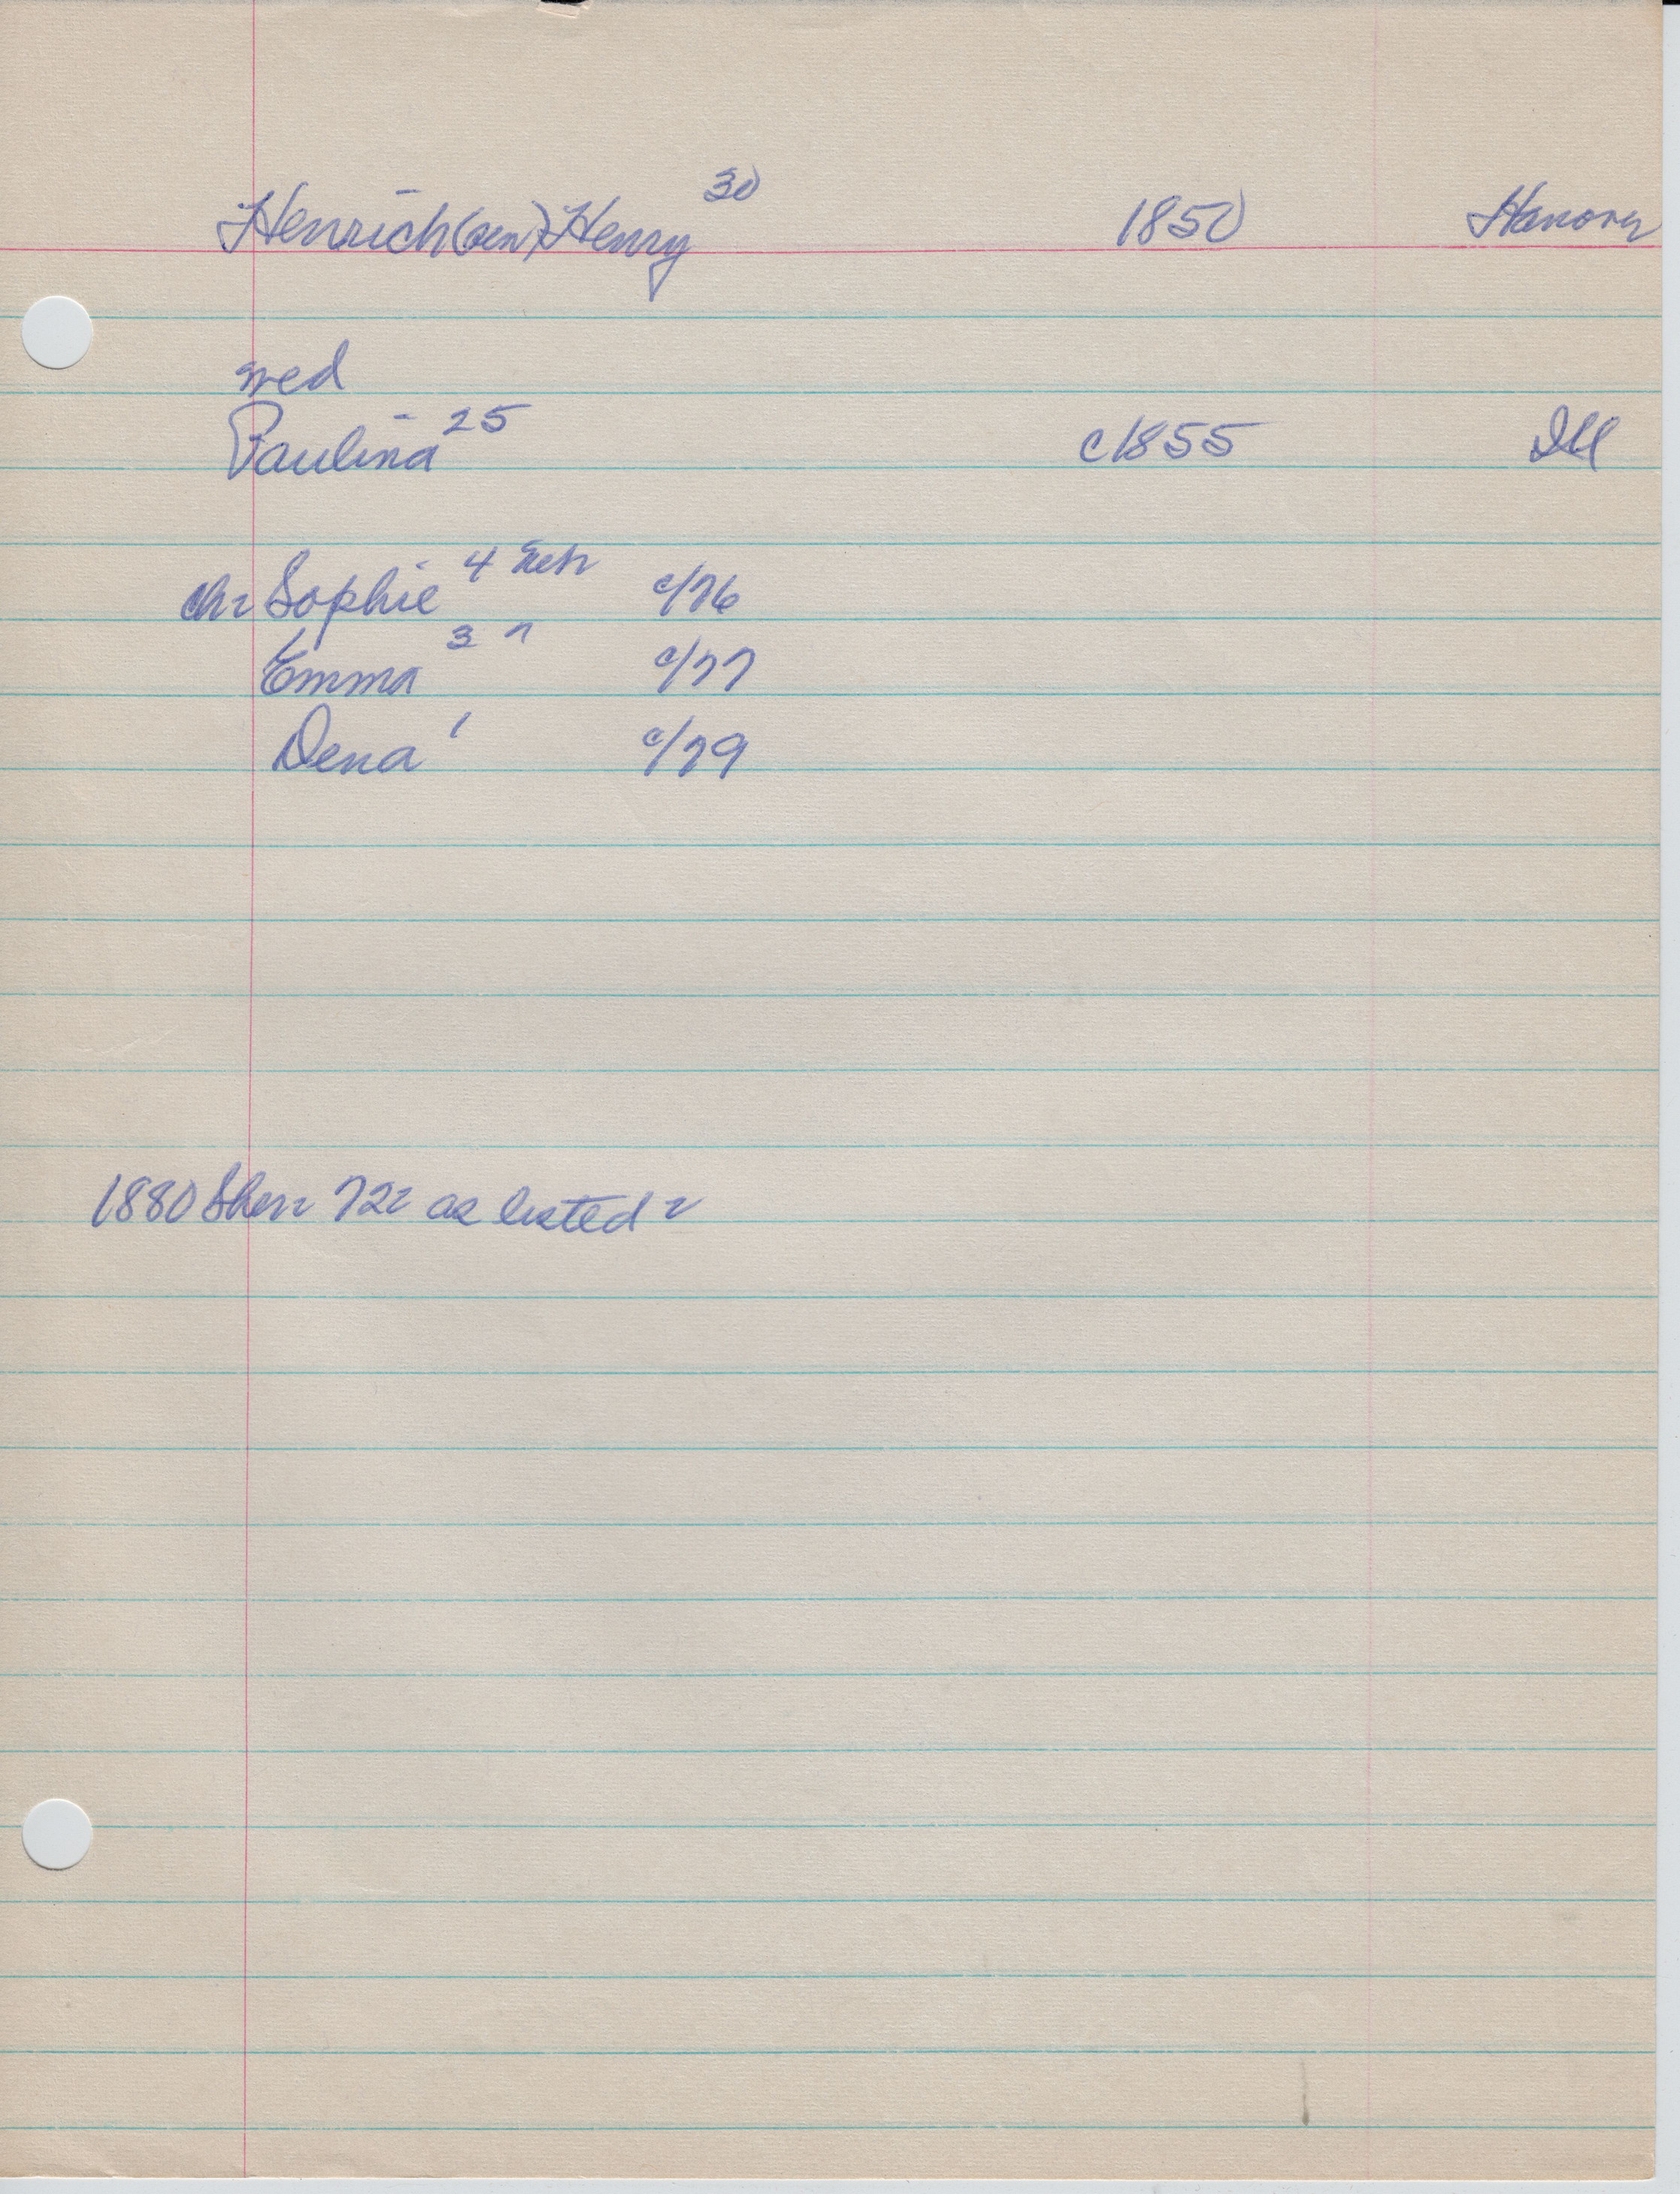 Henrich(sen), Henry 30 1850 Hanover
wed
Paulina 25 c1855 Ill
ch: Sophie 4 Neb c/76
Emma 3 " c/77
Dena 1 c/79
1880 Sher: 72: as listed: